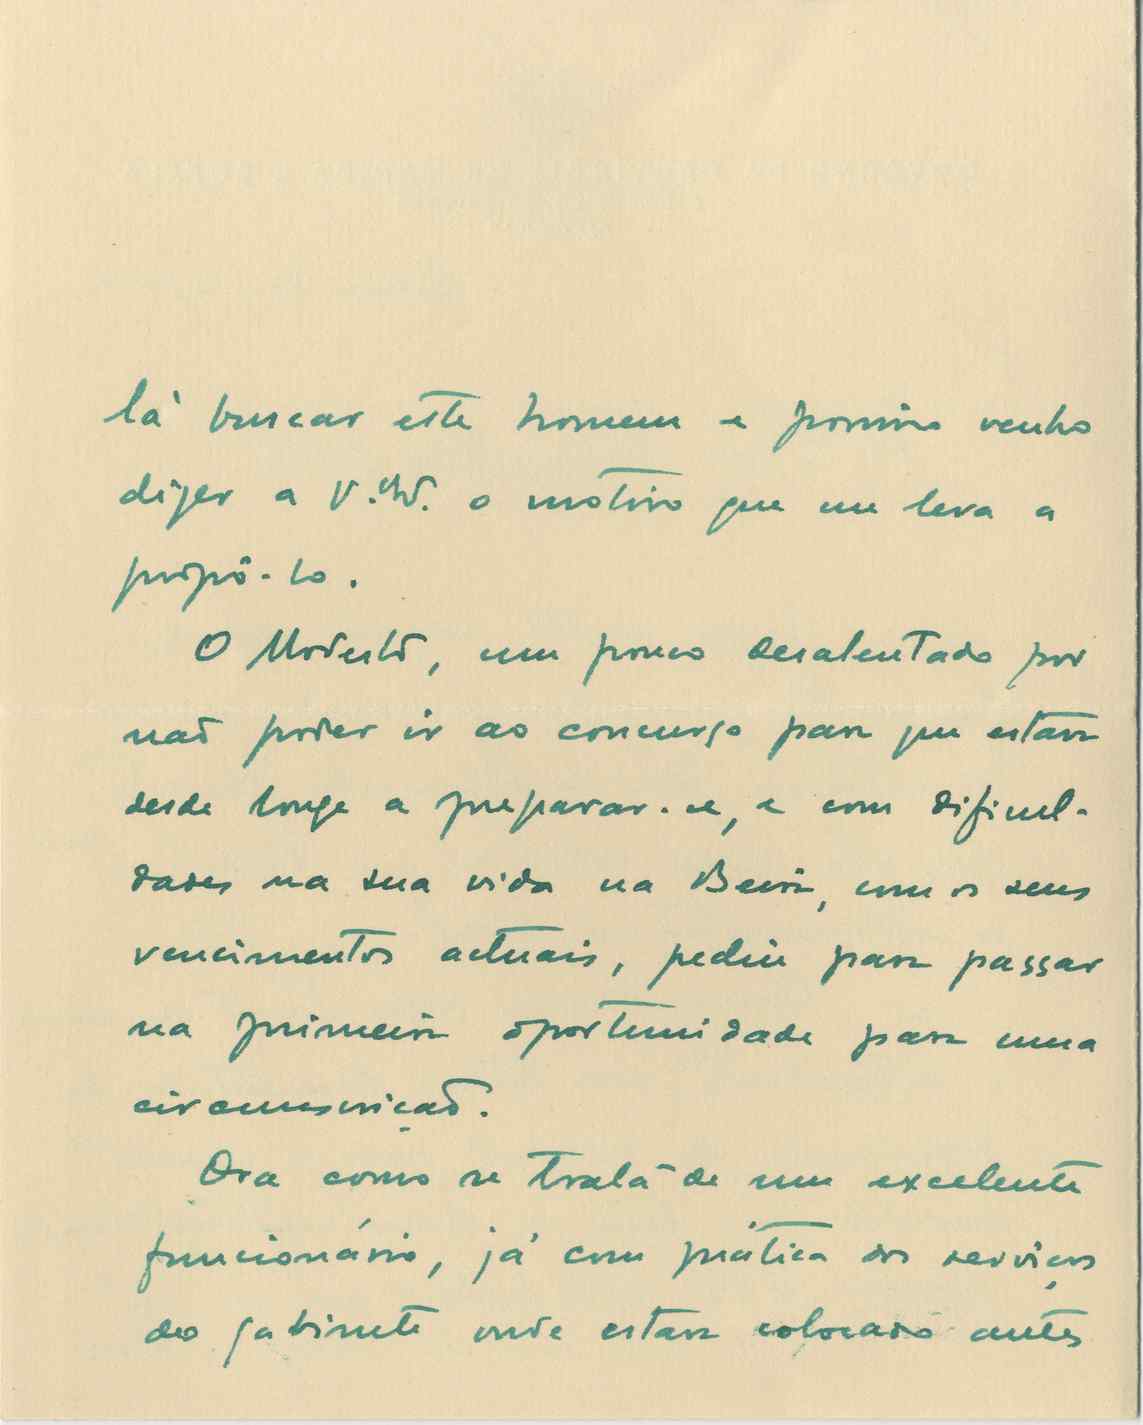 lá buscar este homem e por isso venho
dizer a V. Ex.ª o motivo que me leva a
propô-lo.
O Modesto, um pouco desalentado por
não poder ir ao concurso para que estava
desde longe a preparar-se, e com dificul-
dades na sua vida na Beira, com os seus
vencimentos actuais, pediu para passar
na primeira oportunidade para uma
circunscrição.
Ora como se trata de um excelente
funcionário, já com prática dos serviços
do gabinete onde estava colocado antes